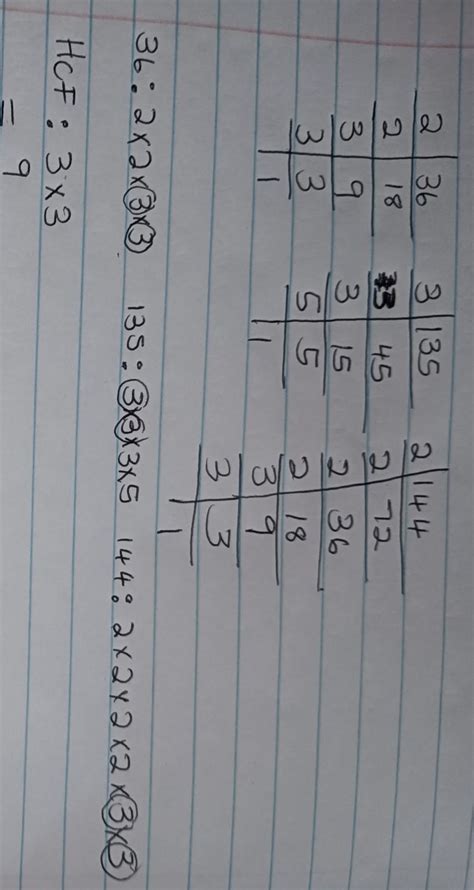 2 | 36
2 | 18
3 | 9
3 | 3
1
3 | 135
3 | 45
3 | 15
5 | 5
1
2 | 144
2 | 72
2 | 36
2 | 18
3 | 9
3 | 3
1
36: 2x2x3x3 135: 3x3x3x5 144: 2x2x2x2x3x3
HCF: 3x3
= 9